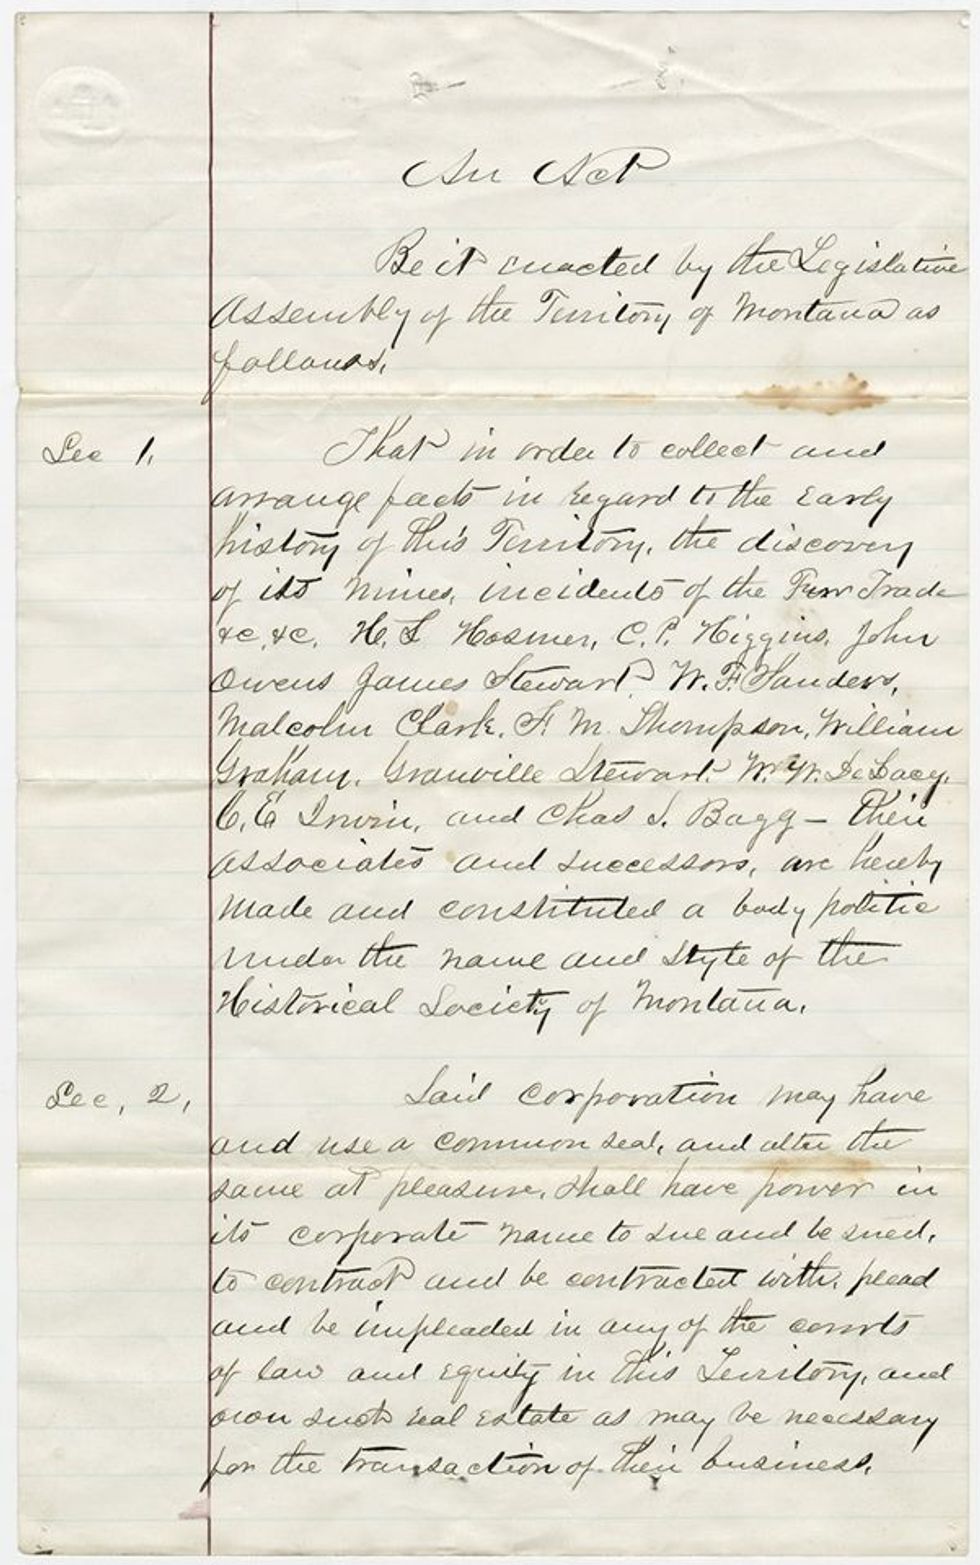 An Act
Be it enacted by the Legislative
Assembly of the Territory of Montana as
follows,
Sec 1, That in order to collect and
arrange facts in regard to the Early
history of this Territory, the discovery
of its Mines, incidents of the Furr Trade
&c, &c, H. L Hosmer, C. P. Higgins, John
Owens James Stewart, W. F. Sanders,
Malcolm Clark, F. M. Thompson, William
Graham, Granville Stewart, W. W. De Lacy,
C, E Irwin, and Chas S. Bagg – their
associates and successors, are hereby
made and constituted a body politic
under the name and style of the
Historical Society of Montana.
Sec, 2, Said corporation may have
and use a common seal, and alter the
same at pleasure, shall have power in
its corporate name to sue and be sued,
to contract and be contracted with, plead
and be impleaded in any of the courts
of law and Equity in this Territory, and
own such real Estate as may be necessary
for the transaction of their business,